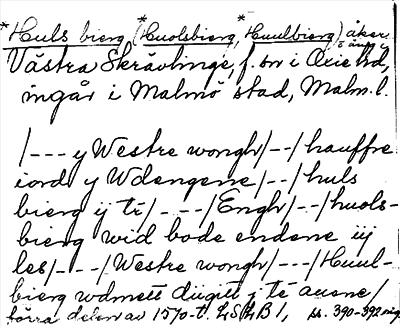 *Huls bierg (*Huolsbierg, *Huulbierg) åker o äng i
Västra Skrävlinge, f. sn i Oxie hd,
ingår i Malmö stad, Malm. l.
/--- y Westre wongh/--/hauffre
iord y Wdengene/--/huls
bierg ÿ tì/----/Engh/--/huols-
bierg wid bode endene iij
les/---/Westre wongh/---/Huul-
bierg wdmett diigitt i té ausne/
förra delen av 1570-t. LSHB 1, s. 390-392